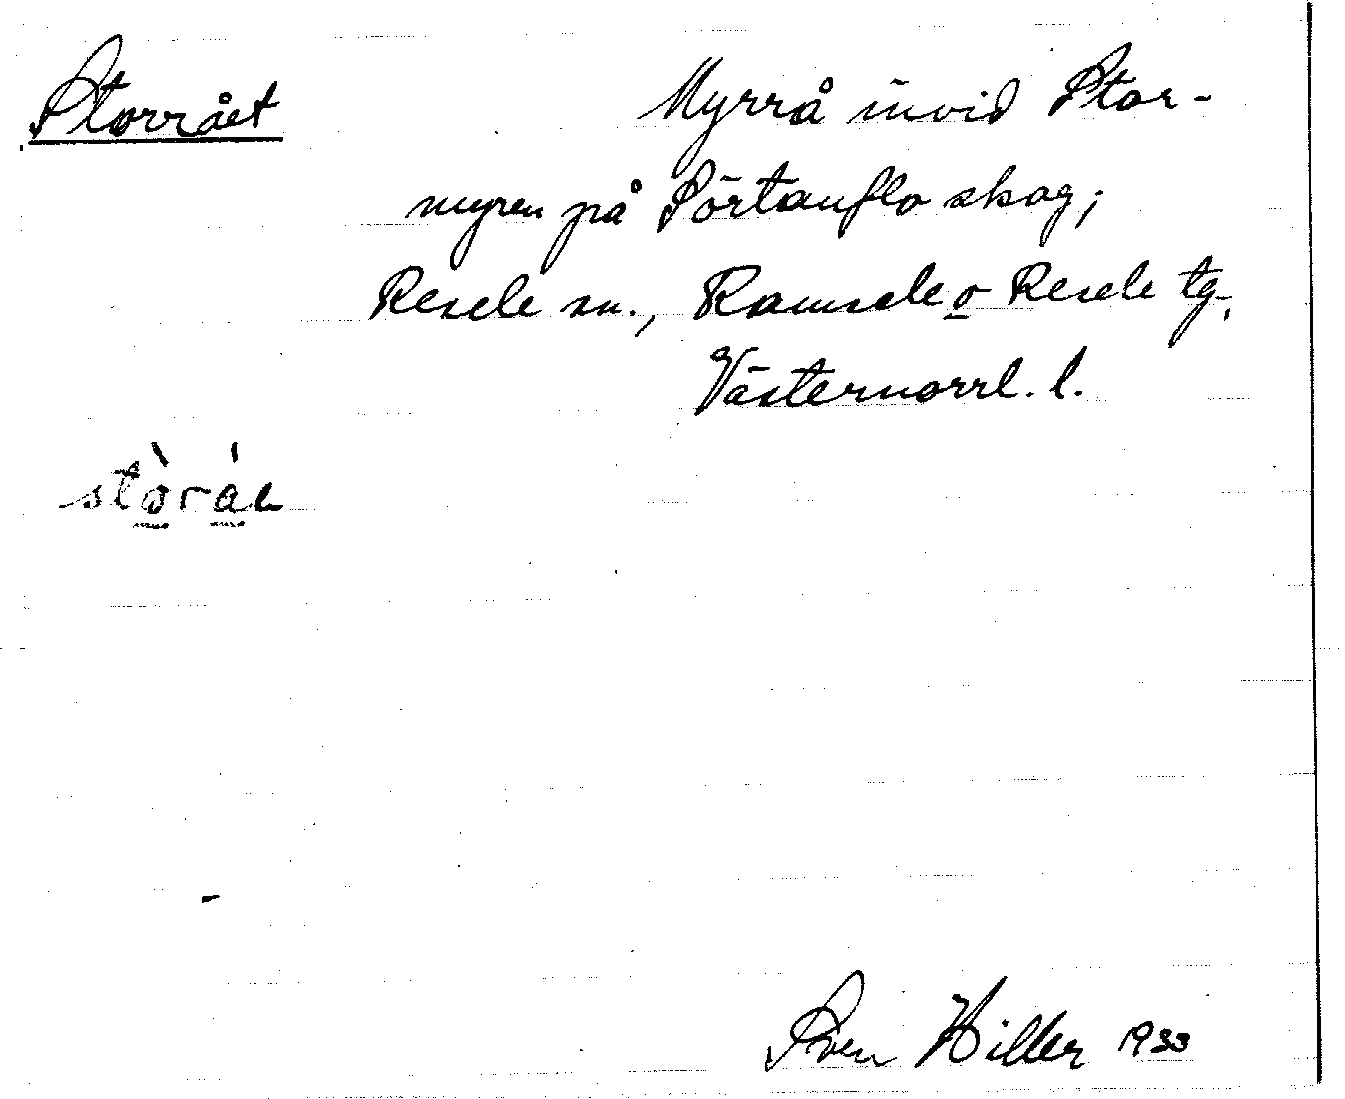 Storrået
Myrrå invid Stor-
myren på Sörtanflo skog;
Resele sn., Ramsele o Resele tg.,
Västernorrl. l.
Sven Hiller 1933